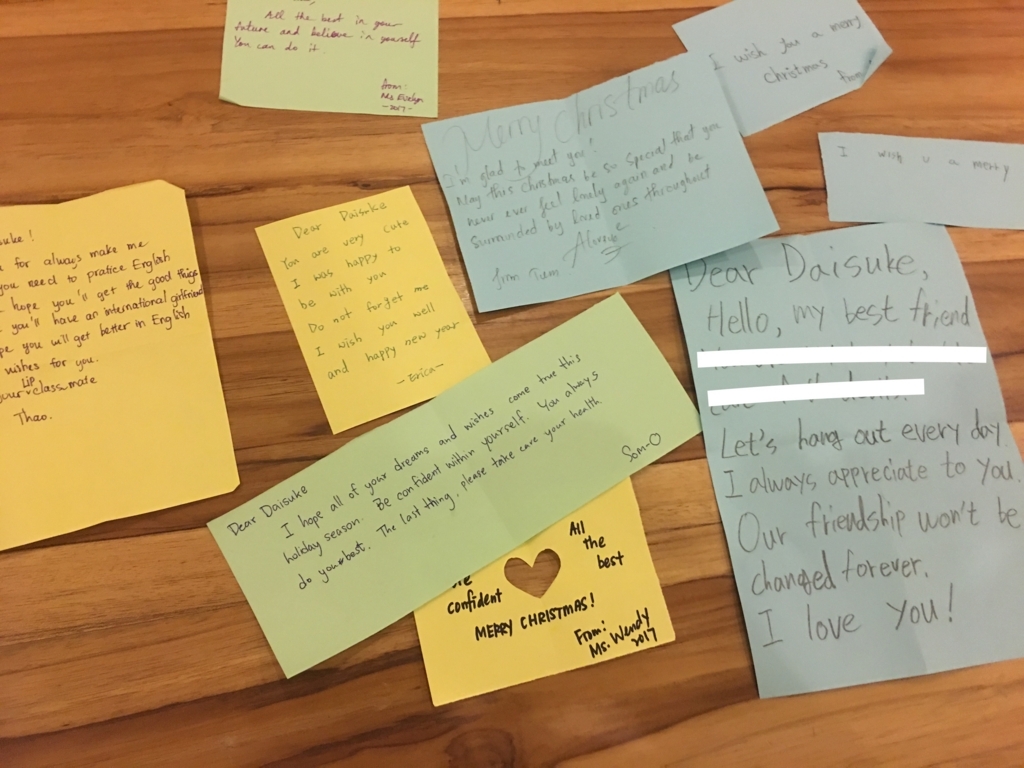 All the best in your
future and believe in yourself
You can do it.
from:
Ms. Evelyn
-2017-
I wish you a merry
christmas
from
Merry Christmas
I'm glad to meet you!
May this Christmas be so special that you
never ever feel lonely again and be
surrounded by loved ones throughout
from Tum
I wish u a merry
uke!
for always make me
you need to pratice English
hope you'll get the good things
you'll have an international girlfriend
pe you will get better in English
wishes for you.
your LIP classmate
Thao.
Dear Daisuke
You are very cute
I was happy to
be with you
Do not forget me
I wish you well
and happy new year
-Erica-
Dear Daisuke
I hope all of your dreams and wishes come true this
holiday season. Be confident within yourself. You always
do your best. The last thing, please take care your health
Som-O
confident
All
the
best
MERRY CHRISTMAS!
From:
Ms. Wendy
2017
Dear Daisuke,
Hello, my best friend
Let's hang out every day
I always appreciate to you.
Our friendship won't be
changed forever.
I love you!